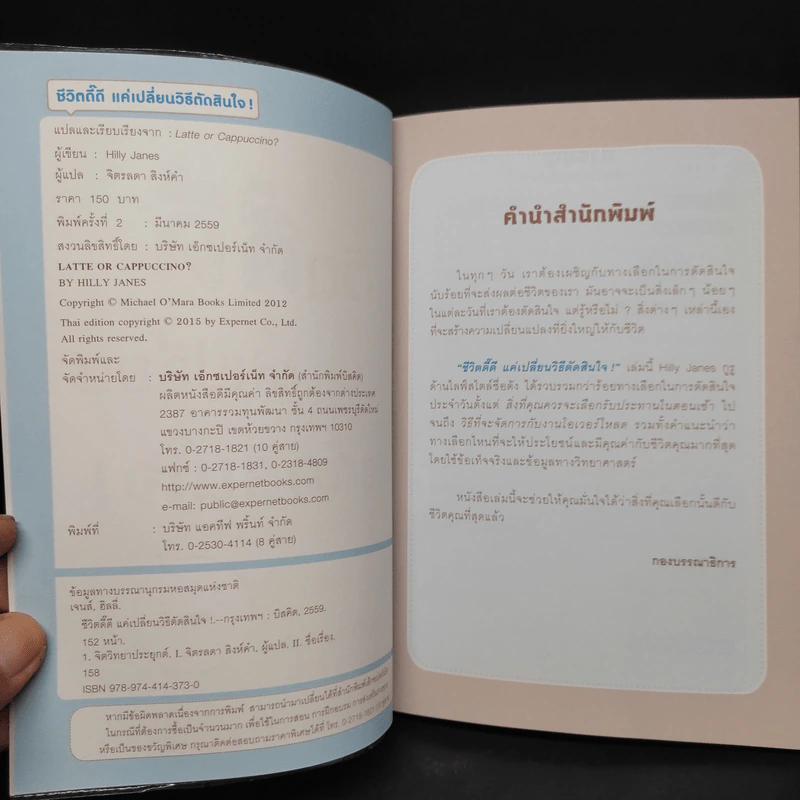 ชีวิตดี๊ดี แค่เปลี่ยนวิธีตัดสินใจ !
แปลและเรียบเรียงจาก : Latte or Cappuccino?
ผู้เขียน : Hilly Janes
ผู้แปล : จิตรลดา สิงห์คำ
ราคา 150 บาท
พิมพ์ครั้งที่ 2 : มีนาคม 2559
สงวนลิขสิทธิ์โดย : บริษัท เอ็กซเปอร์เน็ท จำกัด
LATTE OR CAPPUCCINO?
BY HILLY JANES
Copyright © Michael O'Mara Books Limited 2012
Thai edition copyright © 2015 by Expernet Co., Ltd.
All rights reserved.
จัดพิมพ์และ
จัดจำหน่ายโดย : บริษัท เอ็กซเปอร์เน็ท จำกัด (สำนักพิมพ์บิสคิต)
ผลิตหนังสือดีมีคุณค่า ลิขสิทธิ์ถูกต้องจากต่างประเทศ
2387 อาคารรวมทุนพัฒนา ชั้น 4 ถนนเพชรบุรีตัดใหม่
แขวงบางกะปิ เขตห้วยขวาง กรุงเทพฯ 10310
โทร. 0-2718-1821 (10 คู่สาย)
แฟกซ์ : 0-2718-1831, 0-2318-4809
http://www.expernetbooks.com
e-mail: public@expernetbooks.com
พิมพ์ที่ : บริษัท แอคทีฟ พริ้นท์ จำกัด
โทร. 0-2530-4114 (8 คู่สาย)
ข้อมูลทางบรรณานุกรมหอสมุดแห่งชาติ
เจนส์, ฮิลลี่.
ชีวิตดี๊ดี แค่เปลี่ยนวิธีตัดสินใจ !.--กรุงเทพฯ : บิสคิต, 2559.
152 หน้า.
1. จิตวิทยาประยุกต์. I. จิตรลดา สิงห์คำ, ผู้แปล. II. ชื่อเรื่อง.
158
ISBN 978-974-414-373-0
หากมีข้อผิดพลาดเนื่องจากการพิมพ์ สามารถนำมาเปลี่ยนได้ที่สำนักพิมพ์
ในกรณีที่ต้องการซื้อเป็นจำนวนมาก เพื่อใช้ในการสอน การฝึกอบรม
หรือเป็นของขวัญพิเศษ กรุณาติดต่อสอบถามราคาพิเศษได้ที่ โทร. 0-2718-1821
คำนำสำนักพิมพ์
ในทุกๆ วัน เราต้องเผชิญกับทางเลือกในการตัดสินใจ
นับร้อยที่จะส่งผลต่อชีวิตของเรา มันอาจจะเป็นสิ่งเล็กๆ น้อยๆ
ในแต่ละวันที่เราต้องตัดสินใจ แต่รู้หรือไม่ ? สิ่งต่างๆ เหล่านี้เอง
ที่จะสร้างความเปลี่ยนแปลงที่ยิ่งใหญ่ให้กับชีวิต
"ชีวิตดี๊ดี แค่เปลี่ยนวิธีตัดสินใจ !" เล่มนี้ Hilly Janes กูรู
ด้านไลฟ์สไตล์ชื่อดัง ได้รวบรวมกว่าร้อยทางเลือกในการตัดสินใจ
ประจำวันตั้งแต่ สิ่งที่คุณควรจะเลือกรับประทานในตอนเช้า ไป
จนถึง วิธีที่จะจัดการกับงานโอเวอร์โหลด รวมทั้งคำแนะนำว่า
ทางเลือกไหนที่จะให้ประโยชน์และมีคุณค่ากับชีวิตคุณมากที่สุด
โดยใช้ข้อเท็จจริงและข้อมูลทางวิทยาศาสตร์
หนังสือเล่มนี้จะช่วยให้คุณมั่นใจได้ว่าสิ่งที่คุณเลือกนั้นดีกับ
ชีวิตคุณที่สุดแล้ว
กองบรรณาธิการ